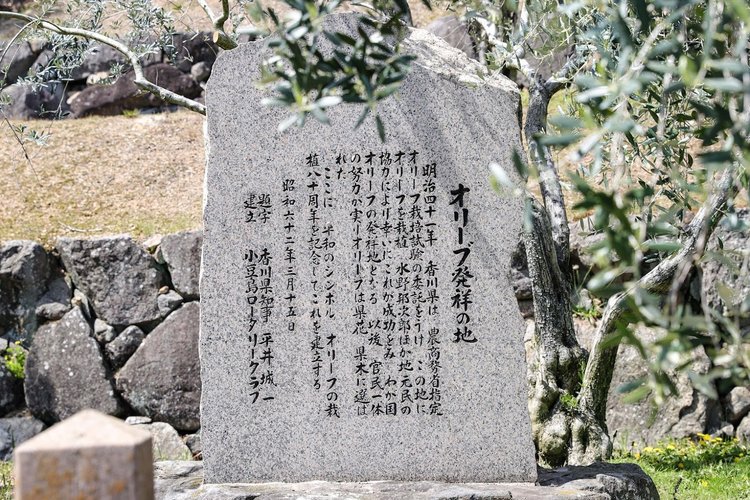 オリーブ発祥の地
明治四十一年 香川県は 農商務省指定
オリーブ栽培試験の委託をうけ この地に
オリーブを栽植 水野邦次郎ほか地元民の
協力により幸いにこれが成功をみ わが国
オリーブの発祥地となる 以後 官民一体
の努力が実りオリーブは県花 県木に選ば
れた
ここに 平和のシンボル オリーブの栽
植八十周年を記念してこれを建立する
昭和六十二年三月十五日
題字 香川県知事 平井城一
建立 小豆島ロータリークラブ